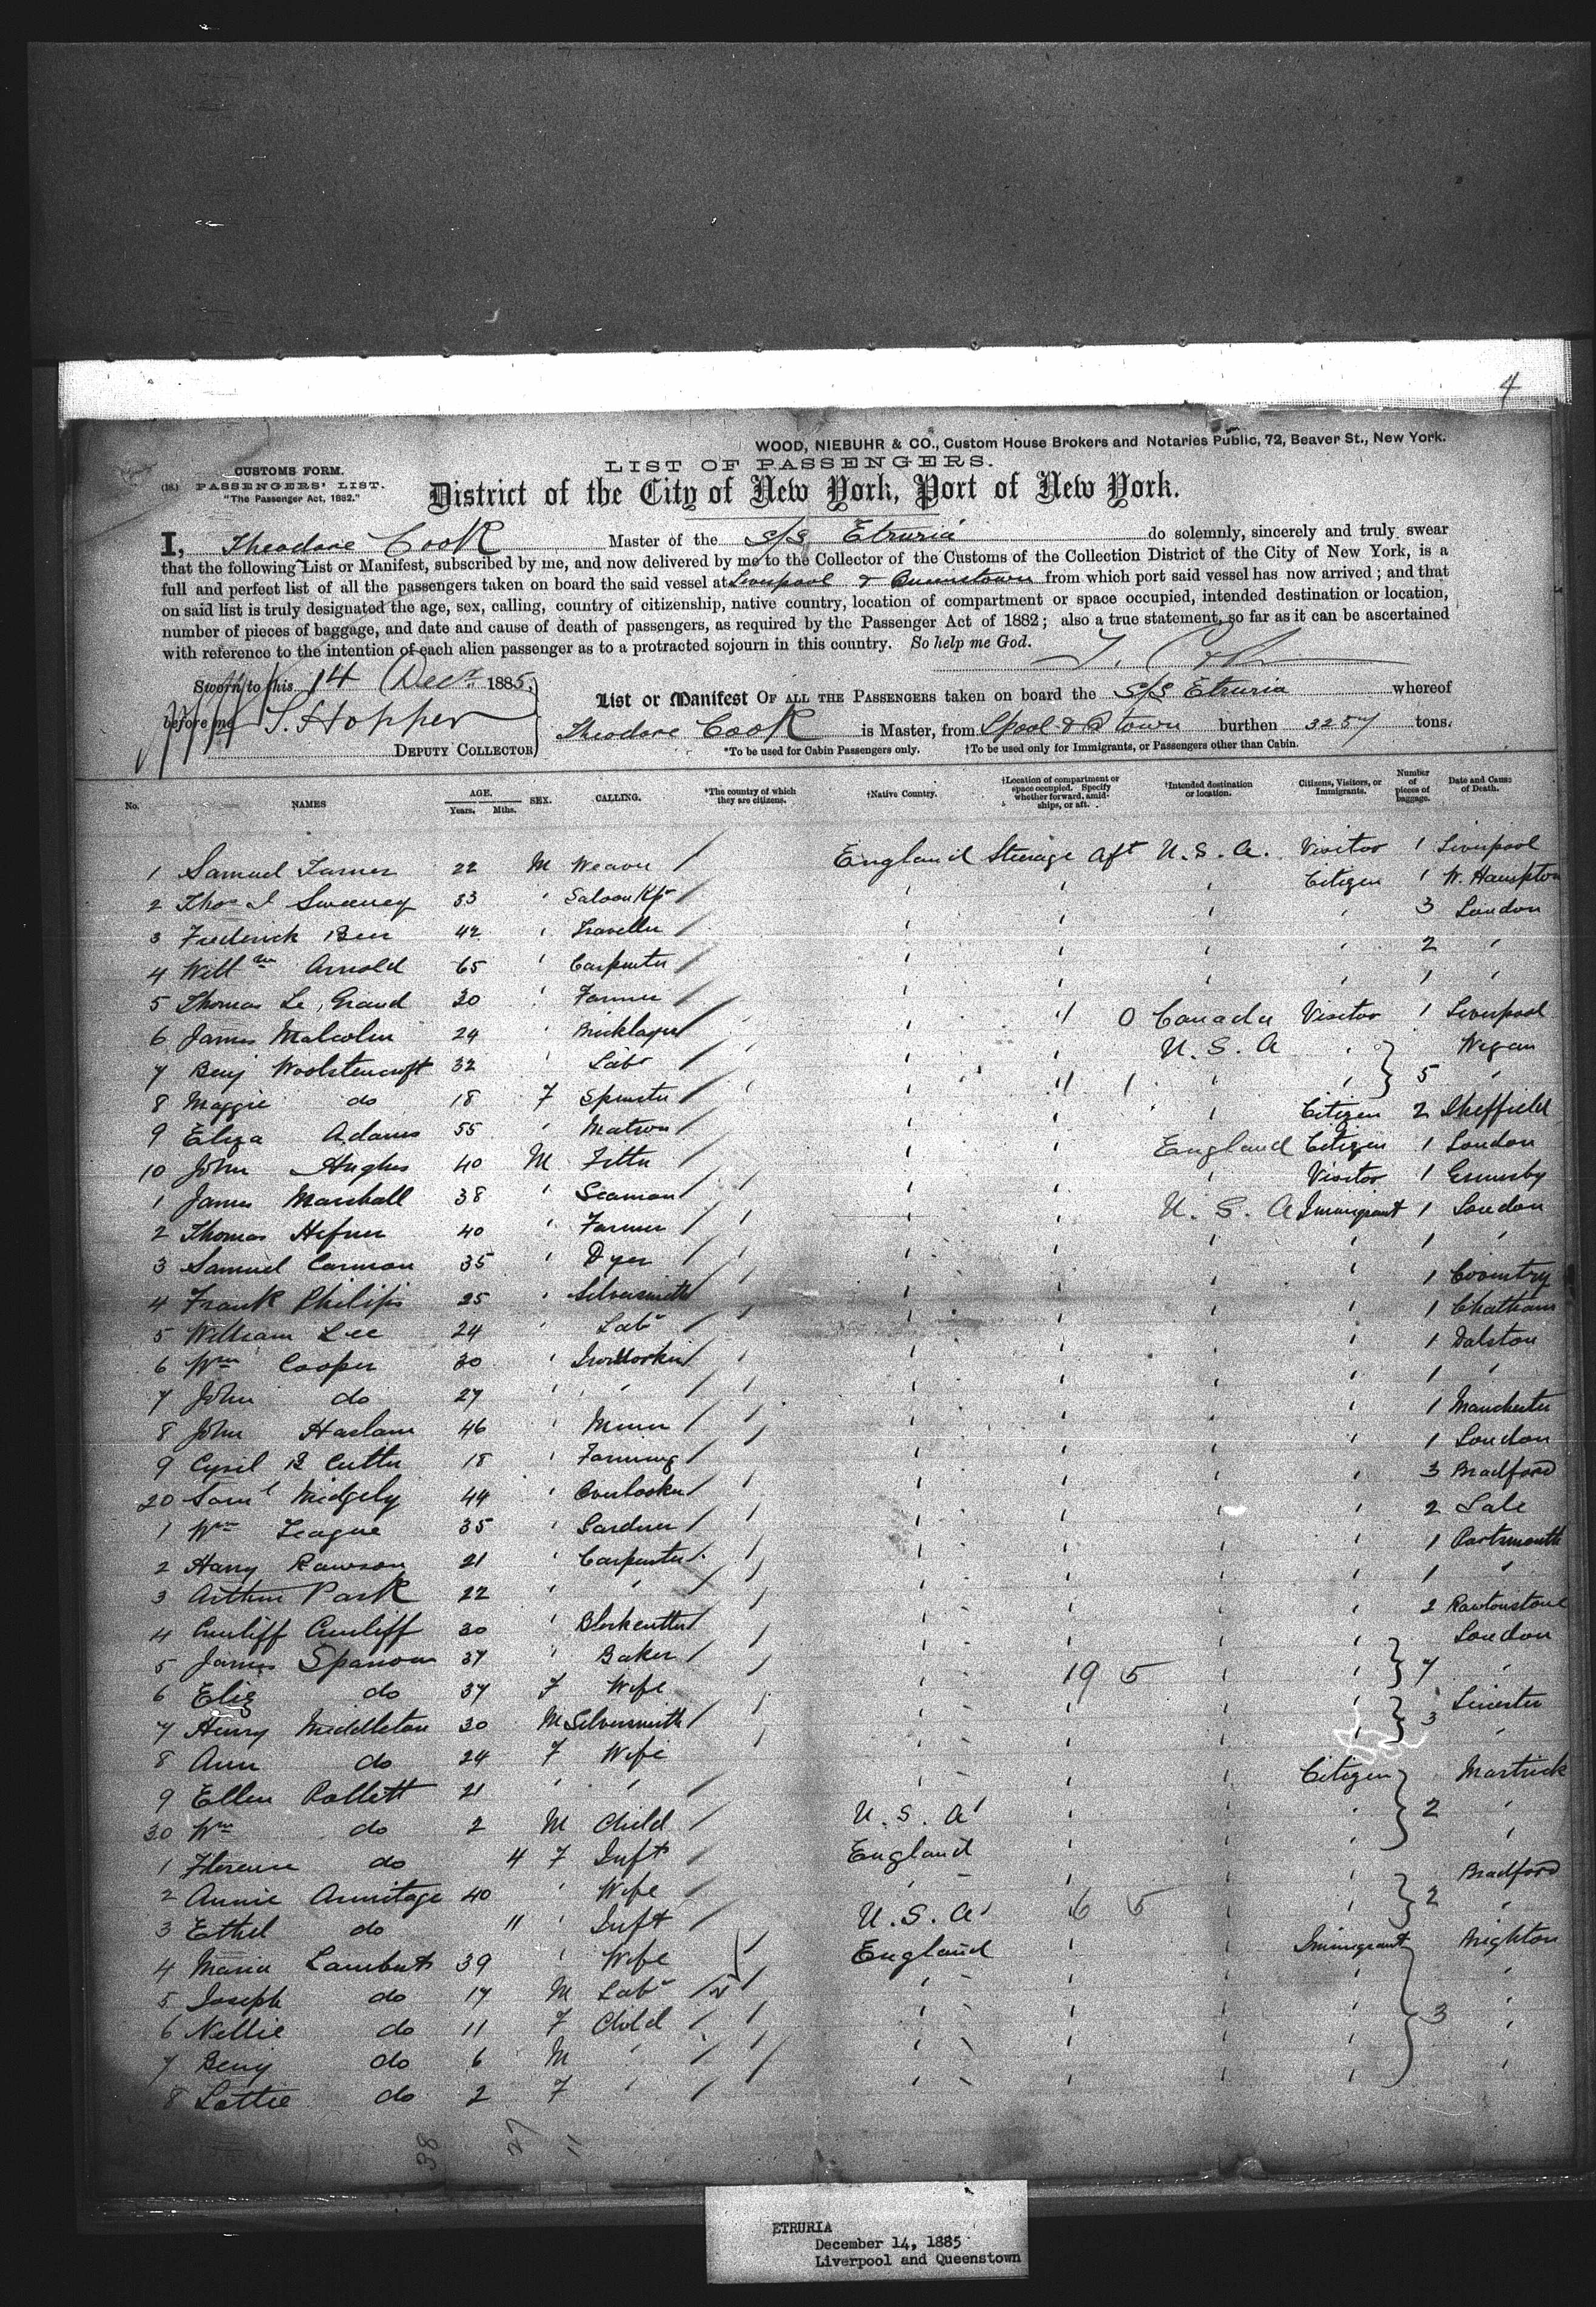 4
WOOD, NIEBUHR & CO., Custom House Brokers and Notaries Public, 72, Beaver St., New York.
CUSTOMS FORM.
(18.) PASSENGERS' LIST.
"The Passenger Act, 1882."
LIST OF PASSENGERS.
District of the City of New York, Port of New York.
I, Theodore Cook Master of the S/S Etruria do solemnly, sincerely and truly swear
that the following List or Manifest, subscribed by me, and now delivered by me to the Collector of the Customs of the Collection District of the City of New York, is a
full and perfect list of all the passengers taken on board the said vessel at Liverpool & Queenstown from which port said vessel has now arrived; and that
on said list is truly designated the age, sex, calling, country of citizenship, native country, location of compartment or space occupied, intended destination or location,
number of pieces of baggage, and date and cause of death of passengers, as required by the Passenger Act of 1882; also a true statement, so far as it can be ascertained
with reference to the intention of each alien passenger as to a protracted sojourn in this country. So help me God.
T. Cook
Sworn to this 14 Decr 1885,
before me S. Hopper
DEPUTY COLLECTOR
List or Manifest OF ALL THE PASSENGERS taken on board the S/S Etruria whereof
Theodore Cook is Master, from Lpool & Q town burthen 3257 tons.
*To be used for Cabin Passengers only. †To be used only for Immigrants, or Passengers other than Cabin.
No. NAMES AGE. Years. Mths. SEX. CALLING. *The country of which they are citizens. †Native Country. †Location of compartment or space occupied. Specify whether forward, amidships, or aft. †Intended destination or location. Citizens, Visitors, or Immigrants. Number of pieces of baggage. Date and Cause of Death.
1 Samuel Turner 22 M Weaver / England Steerage Aft U.S.A. Visitor 1 Liverpool
2 Thos J Sweeney 33 ' Saloon Kpr / ' ' ' Citizen 1 W. Hampton
3 Frederick Beer 42 ' Traveller / ' ' ' ' 3 London
4 Willm Arnold 65 ' Carpenter / ' ' ' ' 2 '
5 Thomas Le Grand 30 ' Farmer / ' ' ' ' 1 '
6 James Malcolm 24 ' Bricklayer / ' 4 0 Canada Visitor 1 Liverpool
7 Benj Woolstencroft 32 ' Labr / ' ' U.S.A ' Wigan
8 Maggie do 18 F Spinster / ' 4 1 ' ' 5 '
9 Eliza Adams 55 ' Matron / ' ' ' Citizen 2 Sheffield
10 John Hughes 40 M Fitter / ' ' England Citizen 1 London
1 James Marshall 38 ' Seaman / ' ' ' Visitor 1 Grimsby
2 Thomas Hefner 40 ' Farmer / ' ' U.S.A Immigrant 1 London
3 Samuel Carman 35 ' Dyer / ' ' ' ' 1 '
4 Frank Philips 25 ' Silversmith / ' ' ' ' 1 Coventry
5 William Lee 24 ' Labr / ' ' ' ' 1 Chatham
6 Wm Cooper 30 ' Ironworker / ' ' ' ' 1 Dalston
7 John do 27 ' ' / ' ' ' ' 1 '
8 John Haslam 46 ' Miner / ' ' ' ' 1 Manchester
9 Cyril B Cutter 18 ' Farming / ' ' ' ' 1 London
20 Saml Midgely 44 ' Overlooker / ' ' ' ' 3 Bradford
1 Wm Teague 35 ' Gardner / ' ' ' ' 2 Sale
2 Harry Rawson 21 ' Carpenter / ' ' ' ' 1 Portsmouth
3 Arthur Park 22 ' ' / ' ' ' ' 1 '
4 Cunliff Cunliff 30 ' Blockcutter / ' ' ' ' 2 Rawtonstone
5 James Sparrow 37 ' Baker / ' ' ' ' London
6 Eliz do 37 F Wife ' 19 5 ' ' 7 '
7 Henry Middleton 30 M Silversmith / ' ' ' ' 3 Leicester
8 Ann do 24 F Wife ' ' ' ' '
9 Ellen Pollett 21 ' ' / ' ' ' Citizen
30 Wm do 2 M Child / U.S.A ' ' ' 2 '
1 Florence do 4 F Inft / England ' ' ' '
2 Annie Armitage 40 ' Wife / ' ' ' ' Bradford
3 Ethel do 11 ' Inft / U.S.A 6 5 ' ' 2 '
4 Maria Lambert 39 ' Wife / England ' ' Immigrant Brighton
5 Joseph do 17 M Labr / ' ' ' ' '
6 Nellie do 11 F Child / ' ' ' ' 3 '
7 Benj do 6 M ' / ' ' ' ' '
8 Lottie do 2 F ' / ' ' ' ' '
38 27 11
ETRURIA
December 14, 1885
Liverpool and Queenstown